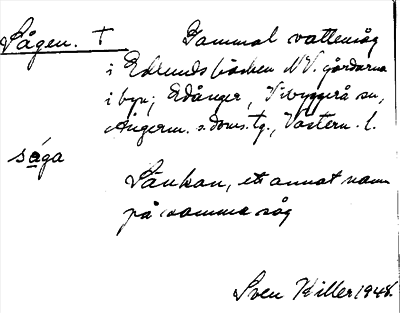 Sågen. † Gammal vattensåg
i Edlundsbäcken NV. gårdarna
i byn; Edånger, Vibyggerå sn,
Ångerm. s. doms. tg., Västern. l.
såga
Sänkan, ett annat namn
på samma såg
Sven Killer 1948.